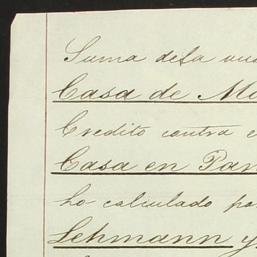 Suma de la vu
Casa de Mo
Credito contra e
Casa en Par
ho calculado po
Lehmann y